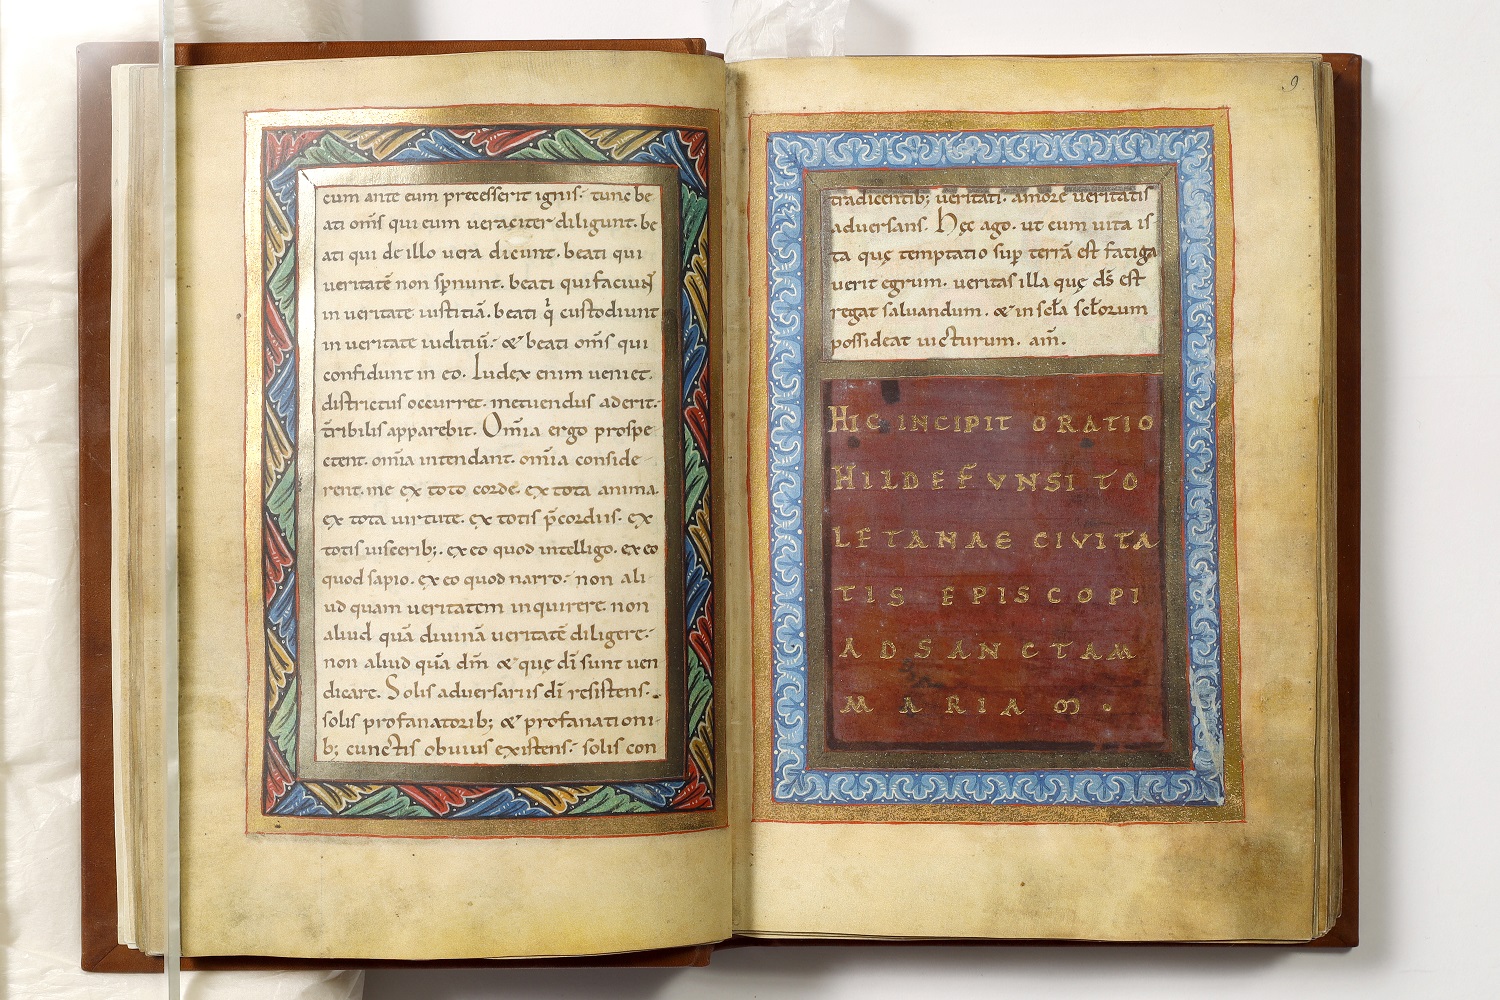 cum ante eum precesserit ignis· tunc be
ati om̅s qui eum veraciter diligunt· be
ati qui de illo vera dicunt· beati qui
veritatē non spnunt· beati qui faciunt
in veritate iustitiā· beati q̇ custodiunt
in veritate iuditiū· & beati om̅s qui
confidunt in eo· Iudex enim veniet·
districtus occurret· metuendus aderit·
t̄ribilis apparebit· Om̅ia ergo prospe
ctent· om̅ia intendant· om̅ia conside
rent· me ex toto corde· ex tota anima·
ex tota virtute· ex totis p̄cordiis· ex
totis viscerib;· ex eo quod intelligo· ex eo
quod sapio· ex eo quod narro· non ali
ud quam veritatem inquirere· non
aliud quā divinā veritatē diligere·
non aliud quā dm̅ & quę di̅ sunt ven
dicare· Solis adversariis di̅ resistens·
solis profanatorib; & profanationi
b; cunctis obvius existens· solis con
9
tradicentib; veritati· amore veritatis
adversans· Hęc ago· ut cum vita is
ta quę temptatio sup terrā est fatiga
verit egrum· veritas illa quę ds̅ est
regat salvandum· & in scl̅a scl̅orum
possideat victurum· am̅·
HIC INCIPIT ORATIO
HILDEFVNSI TO
LETANAE CIVITA
TIS EPISCOPI
AD SANCTAM
MARIAM·